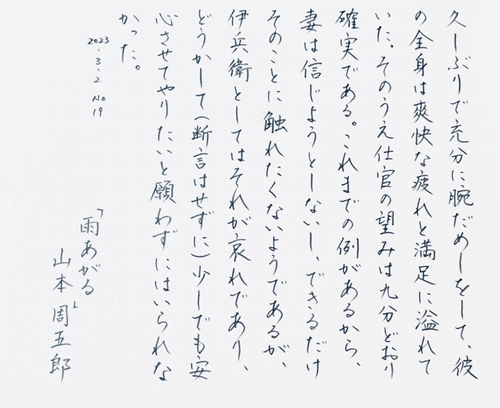 久しぶりで充分に腕だめしをして、彼
の全身は爽快な疲れと満足に溢れて
いた。そのうえ仕官の望みは九分どおり
確実である。これまでの例があるから、
妻は信じようとしないし、できるだけ
そのことに触れたくないようであるが、
伊兵衛としてはそれが哀れであり、
どうかして(断言はせずに)少しでも安
心させてやりたいと願わずにはいられな
かった。
2023.3.2 No19
「雨あがる」
山本周五郎